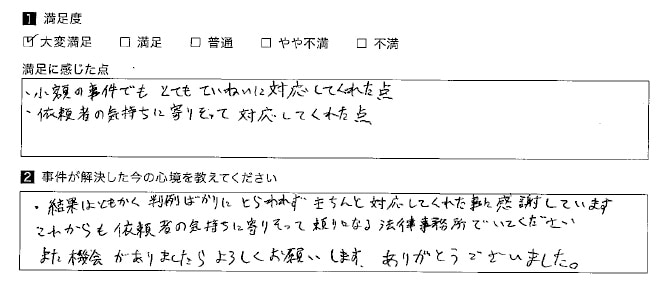 1 満足度
☑大変満足 □ 満足 □ 普通 □ やや不満 □ 不満
満足に感じた点
・小額の事件でも とても ていねいに対応してくれた点
・依頼者の気持ちに寄りそって 対応してくれた点
2 事件が解決した今の心境を教えてください
・結果はともかく 判例ばかりに とらわれず きちんと 対応してくれた事に 感謝しています
これからも 依頼者の気持ちに寄りそって 頼りになる 法律事務所でいてください
また機会がありましたら よろしくお願いします、ありがとうございました。